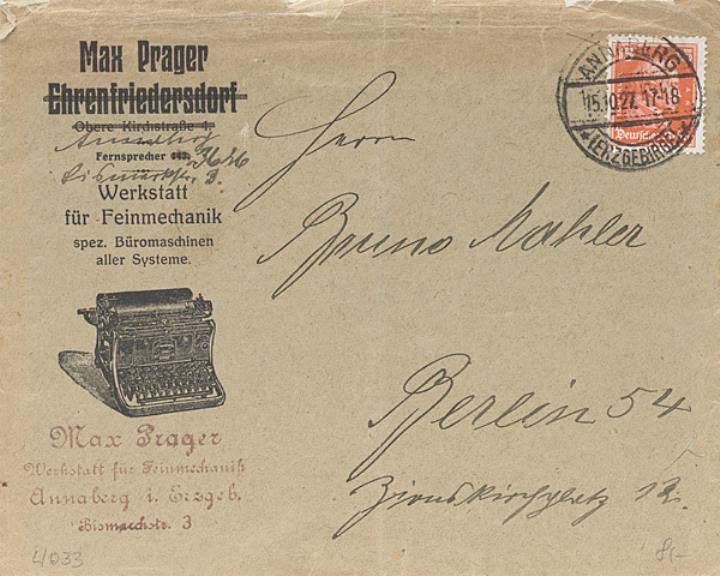 Max Prager
Ehrenfriedersdorf
Obere Kirchstraße 4.
Fernsprecher
Bismarckstr. 3.
Werkstatt
für Feinmechanik
spez. Büromaschinen
aller Systeme.
Max Prager
Werkstatt für Feinmechanik
Annaberg i. Erzgeb.
Bismarckstr. 3
4033
ANNABERG
15.10.27. 17-18
(ERZGEBIRGE)
Deutsches
Herrn
Bruno Mahler
Berlin 54
Zionskirchplatz 12.
8,-